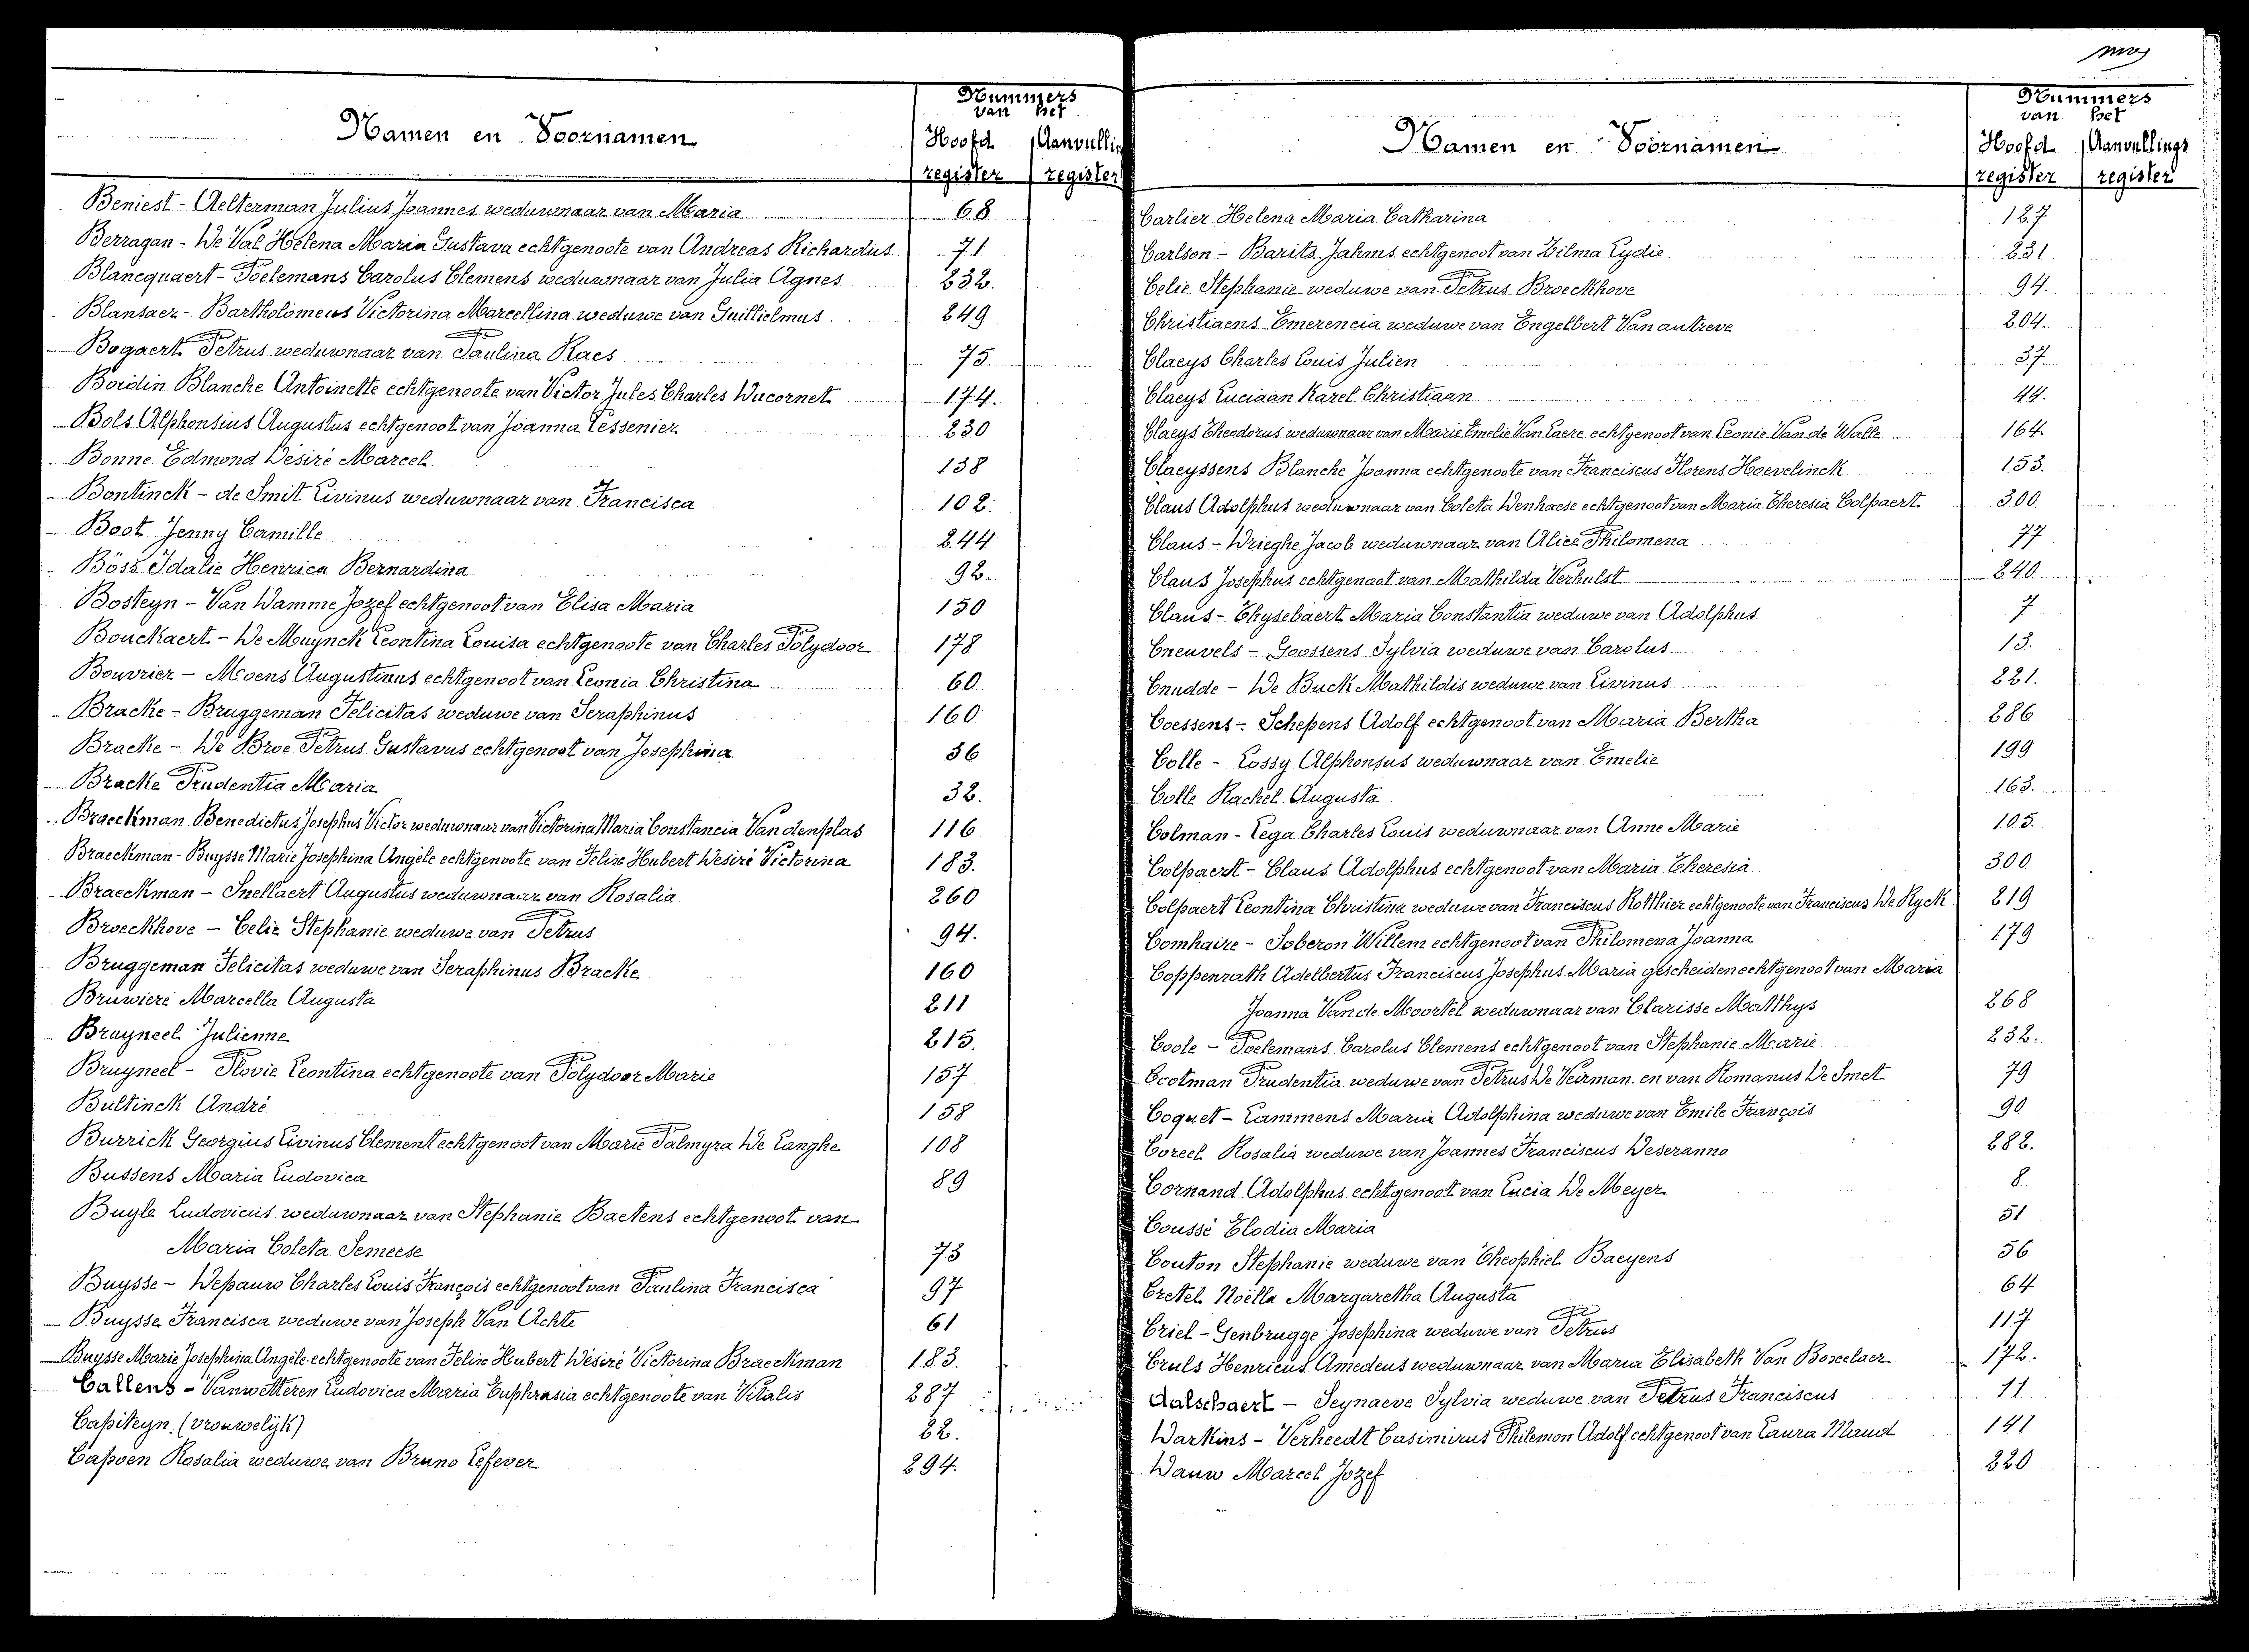 Namen en Voornamen
Nummers
van het
Hoofd Aanvullin
register register
Beniest - Aelterman Julius Joannes weduwnaar van Maria 68
Berragan - De Val Helena Maria Gustava echtgenoote van Andreas Richardus 71
Blancquaert - Poelemans Carolus Clemens weduwnaar van Julia Agnes 232.
Blansaer - Bartholomeus Victorina Marcellina weduwe van Guillielmus 249
Bogaert Petrus weduwnaar van Paulina Raes 75.
Boidin Blanche Antoinette echtgenoote van Victor Jules Charles Ducornet 174.
Bols Alphonsius Augustus echtgenoot van Joanna Lessenier 230
Bonne Edmond Désiré Marcel 138
Bontinck - de Smit Livinus weduwnaar van Francisca 102.
Boot Jenny Camille 244
Böss Idalie Henrica Bernardina 92.
Bosteyn - Van Damme Jozef echtgenoot van Elisa Maria 150
Bouckaert - De Muynck Leontina Louisa echtgenoote van Charles Polydoor 178
Bouvrier - Moens Augustinus echtgenoot van Leonia Christina 60.
Bracke - Bruggeman Felicitas weduwe van Seraphinus 160
Bracke - De Broe Petrus Gustavus echtgenoot van Josephina 36
Bracke Prudentia Maria 32.
Braeckman Benedictus Josephus Victor weduwnaar van Victorina Maria Constancia Vandenplas 116
Braeckman - Buysse Marie Josephina Angèle echtgenoote van Felix Hubert Désiré Victorina 183.
Braeckman - Snellaert Augustus weduwnaar van Rosalia 260
Broeckhove - Celie Stephanie weduwe van Petrus 94.
Bruggeman Felicitas weduwe van Seraphinus Bracke 160
Bruwiere Marcella Augusta 211
Bruyneel Julienne 215.
Bruyneel - Plovie Leontina echtgenoote van Polydoor Marie 157
Bultinck André 158
Burrick Georgius Livinus Clement echtgenoot van Marie Palmyra De Langhe 108
Bussens Maria Ludovica 89
Buyle Ludovicus weduwnaar van Stephanie Baetens echtgenoot van
Maria Coleta Semeese 73
Buysse - Depauw Charles Louis François echtgenoot van Paulina Francisca 97
Buysse Francisca weduwe van Joseph Van Achte 61
Buysse Marie Josephina Angèle echtgenoote van Felix Hubert Désiré Victorina Braeckman 183.
Callens - Vanwetteren Ludovica Maria Euphrasia echtgenoote van Vitalis 287
Capiteyn. (vrouwelijk) 22.
Capoen Rosalia weduwe van Bruno Lefever 294.
Namen en Voornamen
Nummers
van het
Hoofd Aanvullings
register register
Carlier Helena Maria Catharina 127
Carlson - Barits Jahms echtgenoot van Zilma Lydie 231
Celie Stephanie weduwe van Petrus Broeckhove 94.
Christiaens Emerencia weduwe van Engelbert Vanautreve 204.
Claeys Charles Louis Julien 37
Claeys Luciaan Karel Christiaan 44.
Claeys Theodorus weduwnaar van Marie Emelie Van Laere echtgenoot van Leonie Van de Walle 164.
Claeyssens Blanche Joanna echtgenoote van Franciscus Florens Hoevelinck 153.
Claus Adolphus weduwnaar van Coleta Denhaese echtgenoot van Maria Theresia Colpaert 300
Claus - Drieghe Jacob weduwnaar van Alice Philomena 77
Claus Josephus echtgenoot van Mathilda Verhulst 240.
Claus - Thysebaert Maria Constantia weduwe van Adolphus 7
Cneuvels - Goossens Sylvia weduwe van Carolus 13.
Cnudde - De Buck Mathildis weduwe van Livinus 221.
Coessens - Schepens Adolf echtgenoot van Maria Bertha 286
Colle - Lossy Alphonsus weduwnaar van Emelie 199
Colle Rachel Augusta 163.
Colman - Lega Charles Louis weduwnaar van Anne Marie 105.
Colpaert - Claus Adolphus echtgenoot van Maria Theresia 300
Colpaert Leontina Christina weduwe van Franciscus Rotthier echtgenoote van Franciscus De Ryck 219
Comhaire - Soberon Willem echtgenoot van Philomena Joanna 179
Coppenrath Adelbertus Franciscus Josephus Maria gescheiden echtgenoot van Maria
Joanna Van de Moortel weduwnaar van Clarisse Matthys 268
Coole - Poelemans Carolus Clemens echtgenoot van Stephanie Marie 232.
Cootman Prudentia weduwe van Petrus De Veirman en van Romanus De Smet 79
Coquet - Lammens Maria Adolphina weduwe van Emile François 90
Coreel Rosalia weduwe van Joannes Franciscus Deseranno 282.
Cornand Adolphus echtgenoot van Lucia De Meyer 8
Coussé Elodia Maria 51
Couton Stephanie weduwe van Theophiel Baeyens 56
Cretel Noëlla Margaretha Augusta 64
Criel - Genbrugge Josephina weduwe van Petrus 117
Cruls Henricus Amedeus weduwnaar van Maria Elisabeth Van Boxelaer 172.
Aalschaert - Seynaeve Sylvia weduwe van Petrus Franciscus 11
Darkins - Verheedt Casimirus Philemon Adolf echtgenoot van Laura Maud 141
Dauw Marcel Jozef 220